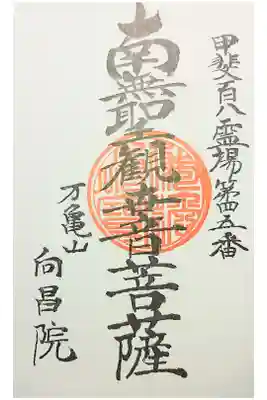 甲斐百八霊場第四五番
南無聖観世音菩薩
万亀山
向昌院